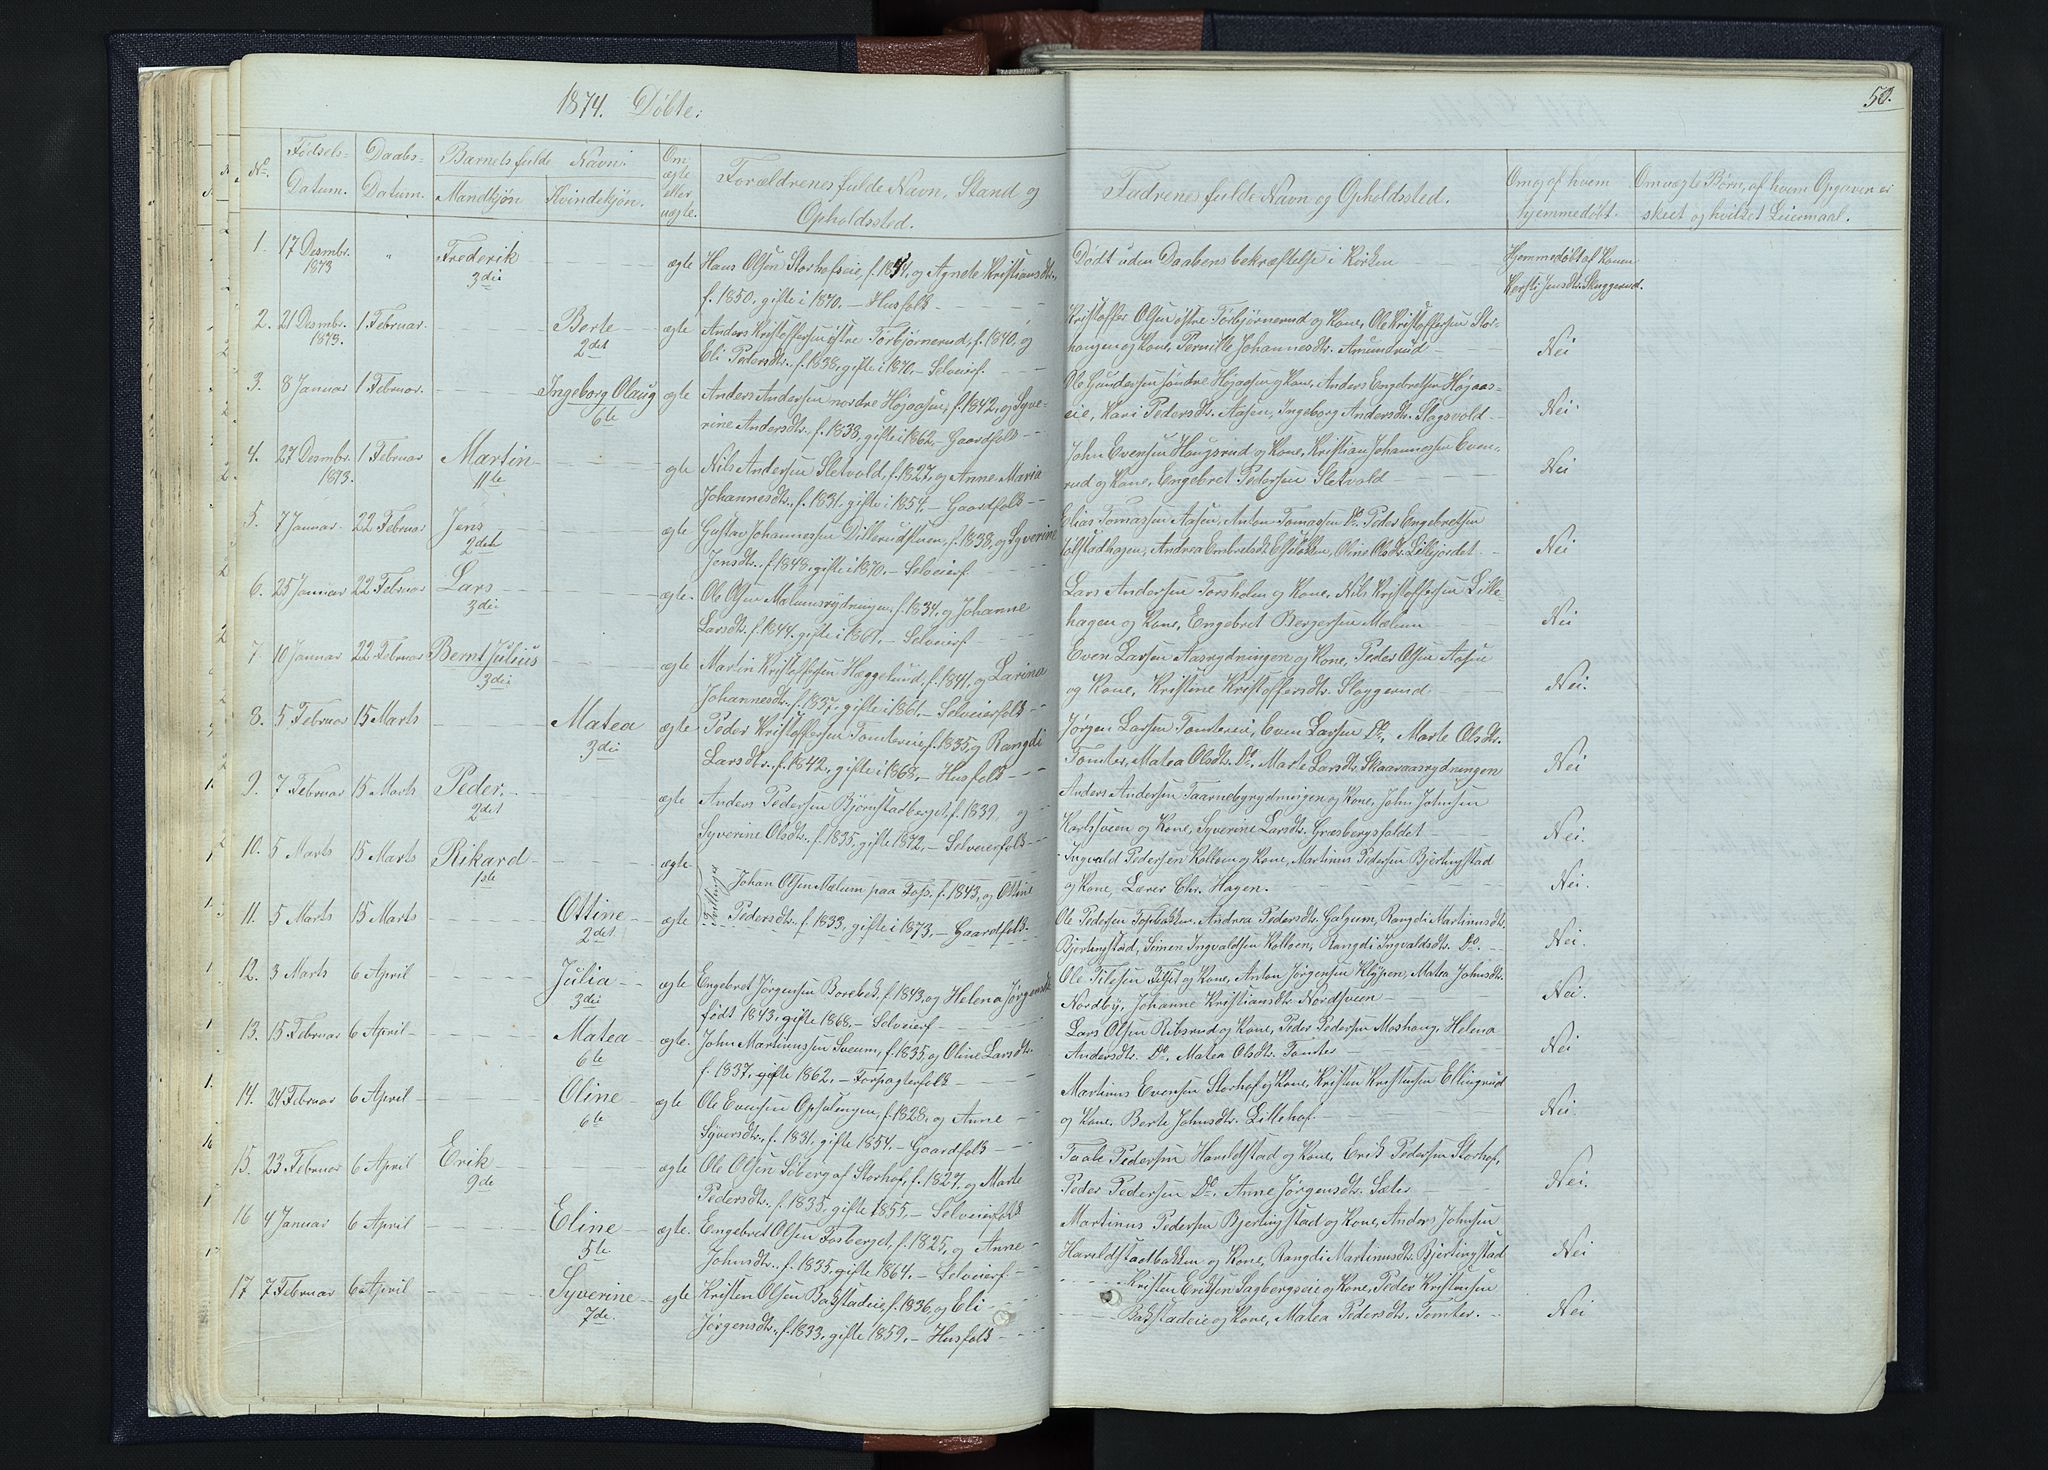 1874. Døbte:
50.
No.
Fødsels-
Datum.
Daabs-
Datum.
Barnets fulde Navn:
Mandkjøn
Kvindekjøn.
Om
ægte
eller
uægte.
Forældrenes fulde Navn, Stand og
Opholdssted.
Fadrenes fulde Navn og Opholdssted.
Om og af hvem
hjemmedøbt.
Om uægte Børn, af hvem Opgaven er
skeet og hvilket Leiermaal.
1. 17 Desmbr. 1873 " Frederik 3die ægte Hans Olsen Storhofseie, f. og Agnete Kristiansdt.,
f. 1850, gifte i 1870. – Husfolk
Dødt uden Daabens bekræftelse i Kirken
Hjemmedøbt af Konen
Kersti Jensdt. Skyggerud.
2. 21 Desmbr. 1873. 1 Februar. Berte 2det ægte Anders Kristoffersen østre Torbjørnerud, f. 1840, og
Eli Pedersdt., f. 1838, gifte i 1870. – Selveierf.
Kristoffer Olsen østre Torbjørnerud og Kone, Ole Kristoffersen Stor-
haugen og Kone, Pernille Johannesdt. Amundrud
Nei
3. 8 Januar 1 Februar. Ingeborg Olaug 6te ægte Anders Andersen nordre Højaasen, f. 1842, og Syve-
rine Andersdt., f. 1838, gifte i 1862. – Gaardfolk
Ole Gundersen søndre Højaasen og Kone, Anders Engebretsen Højaas-
eie, Kari Pedersdt. Aasen, Ingeborg Andersdt. Slagsvold
Nei
4. 27 Desmbr. 1873. 1 Februar Martin 11te ægte Nils Andersen Sletvold, f. 1827, og Anne Maria
Johannesdt., f. 1831. gifte i 1854. – Gaardfolk
John Evensen Haugsrud og Kone, Kristian Johannessen Even-
rud og Kone, Engebret Pedersen Sletvold
Nei
5. 7 Januar 22 Februar Jens 2det ægte Gustav Johannessen Dillerudstuen, f. 1838, og Syverine
Jensdt., f. 1848. gifte i 1870. – Selveierf.
Elias Tomassen Aasen, Anton Tomassen Do. Peder Engebretsen
Andrea Oline Olsdt. Lillejordet
Nei
6. 25 Januar 22 Februar Lars 3die ægte. Ole Olsen Mælumsrydningen, f. 1834, og Johanne
Larsdt. f. 1844. gifte i 1867. – Selveierf.
Lars Andersen Torsholen og Kone, Nils Kristoffersen Lille-
hagen og Kone, Engebret Bergersen Mælum
Nei
7. 10 Januar 22 Februar Bernt Julius 3die ægte Martin Kristoffersen Hæggelund, f. 1841, og Larina
Johannesdt., f. 1837, gifte i 1861. – Selveierfolk
Even Larsen Aasrydningen og Kone, Peder Olsen Aasen
og Kone, Kristine Kristoffersdt. Skyggerud
Nei.
8. 5 Februar 15 Marts Matea 3die ægte Peder Kristoffersen Tomtereie, f. 1835, og Rangdi
Larsdt., f. 1842, gifte i 1868. – Husfolk
Jørgen Larsen Tomtereie, Even Larsen Do, Marte Olsdt.
Tomter, Matea Olsdt. Do. Marte Larsdt. Skaaraasrydningen
Nei
9. 7 Februar 15 Marts Peder. 2det ægte Anders Pedersen Bjørnstadberget, f. 1839, og
Syverine Olsdt., f. 1835, gifte 1872. – Selveierfolk
Anders Andersen Taarnebyrydningen og Kone, John Johnsen
Karlsveen og Kone, Syverine Larsdt. Græsbergsfoldet
Nei.
10. 5 Marts 15 Marts Rikard 1ste ægte Tvillinger Johan Olsen Mælum paa Fos, f. 1843, og Ottine
Ingvald Pedersen Kolloen og Kone, Martinus Pedersen Bjertingstad
og Kone, Lærer Chr. Hagen.
Nei.
11. 5 Marts 15 Marts Ottine 2det ægte Pedersdt. f. 1833, gifte i 1873. – Gaardfolk.
Ole Pedersen Andrea Pedersdt. Galgum, Rangdi Martinusdt.
Bjertingstad, Simen Ingvaldsen Kolloen, Rangdi Ingvaldsdt. Do.
Nei.
12. 3 Marts 6 April Julia 3die ægte Engebret Jørgensen Borebek, f. 1843, og Helena Jørgensdt.
født 1843, gifte 1868. – Selveierf.
Ole og Kone, Anton Jørgensen Klypen, Matea Johnsdt.
Nordby, Johanne Kristiansdt. Nordsveen
Nei.
13. 15 Februar 6 April Matea 6te ægte. John Martinussen Sveum, f. 1835, og Oline Larsdt.
f. 1837, gifte 1862. – Forpagterfolk
Lars Olsen Ribsrud og Kone, Peder Pedersen Moshaug, Helena
Andersdt. Do. Matea Olsdt. Tomter
Nei
14. 24 Februar 6 April Oline 6te ægte Ole Evensen Opsalengen, f. 1828, og Anne
Syversdt., f. 1831, gifte 1854. – Gaardfolk
Martinus Evensen Storhof og Kone, Kristen Kristensen Ellingrud
og Kone, Berte Johnsdt. Lillehof.
Nei.
15. 23 Februar 6 April Erik 9de ægte Ole Olsen Søberg af Storhof, f. 1827, og Marte
Pedersdt., f. 1835, gifte 1855. – Selveierfolk
Taale Pedersen Haraldstad og Kone, Erik Pedersen Storhof,
Peder Pedersen Do. Anne Jørgensdt. Sæter
Nei.
16 4 Januar 6 April Eline 5te ægte. Engebret Olsen Fosberget, f. 1825, og Anne
Johnsdt., f. 1835, gifte 1864. – Selveierf.
Martinus Pedersen Bjertingstad og Kone, Anders Johnsen
Haraldstadbakken og Kone, Rangdi Martinusdt. Bjertingstad
Nei
17 7 Februar 6 April Syverine 7de. ægte Kristen Olsen Bakstadeie, f. 1836, og Eli
Jørgensdt., f. 1833, gifte 1859. – Husfolk
Kristen Eriksen Sagbergseie og Kone, Peder Kristensen
Bakstadeie og Kone, Matea Pedersdt. Tomter.
Nei